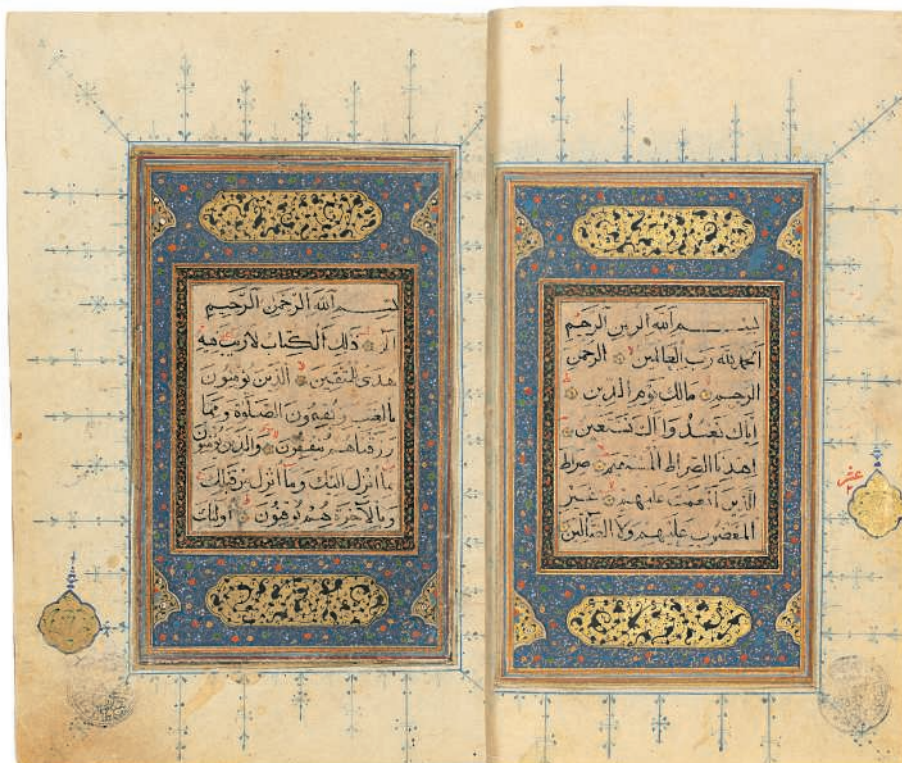 بسم الله الرحمن الرحيم
الحمد لله رب العالمين الرحمن
الرحيم مالك يوم الدين
إياك نعبد وإياك نستعين
اهدنا الصراط المستقيم صراط
الذين أنعمت عليهم غير
المغضوب عليهم ولا الضالين
عشر
بسم الله الرحمن الرحيم
الم ذلك الكتاب لا ريب فيه
هدى للمتقين الذين يؤمنون
بالغيب ويقيمون الصلوة ومما
رزقناهم ينفقون والذين يؤمنون
بما أنزل إليك وما أنزل من قبلك
وبالآخرة هم يوقنون أولئك